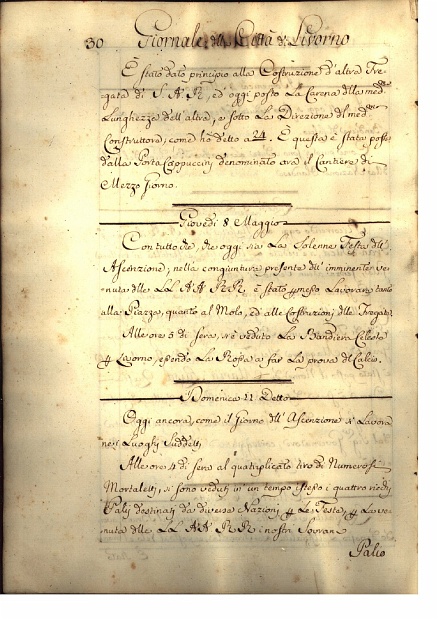 30 Giornale della Città di Livorno
È stato dato principio alla Costruzione d'altra Fre-
gata di S. A. R., ed oggi posto La Carena dlla med.ma
Lunghezza dell'altra, e sotto La Direzione dl med.mo
Construttore, come hò detto a 24. E questa è stata posta
dalla Porta Cappuccini denominato ora il Cantiere di
Mezzo Giorno.
Giovedì 8 Maggio
Con tutto che, che oggi sia La Solenne Festa dll'
Ascenzione, nella congiuntura presente dll' imminente ve-
nuta dlle LL. AA. RR. è stato pmesso Lavorare, tanto
alla Piazza, quanto al Molo, ed alle Costruzioni dlle Fregate.
Alle ore 5 di sera, si è veduto La Bandiera Celeste
p Livorno, essendo La Rossa a far La prova dl Calcio.
Domenica 11 Detto
Oggi ancora, come il Giorno dll' Ascenzione si Lavora
nei Luoghi Suddetti
Alle ore 4 di sera al quatriplicato tiro di Numerosi
Mortaletti, si sono veduti in un tempo istesso i quattro ricchi
Palij destinati da diverse Nazioni p Le Feste, p La ve-
nuta dlle LL. AA. RR. i nostri Sovrani
Palio